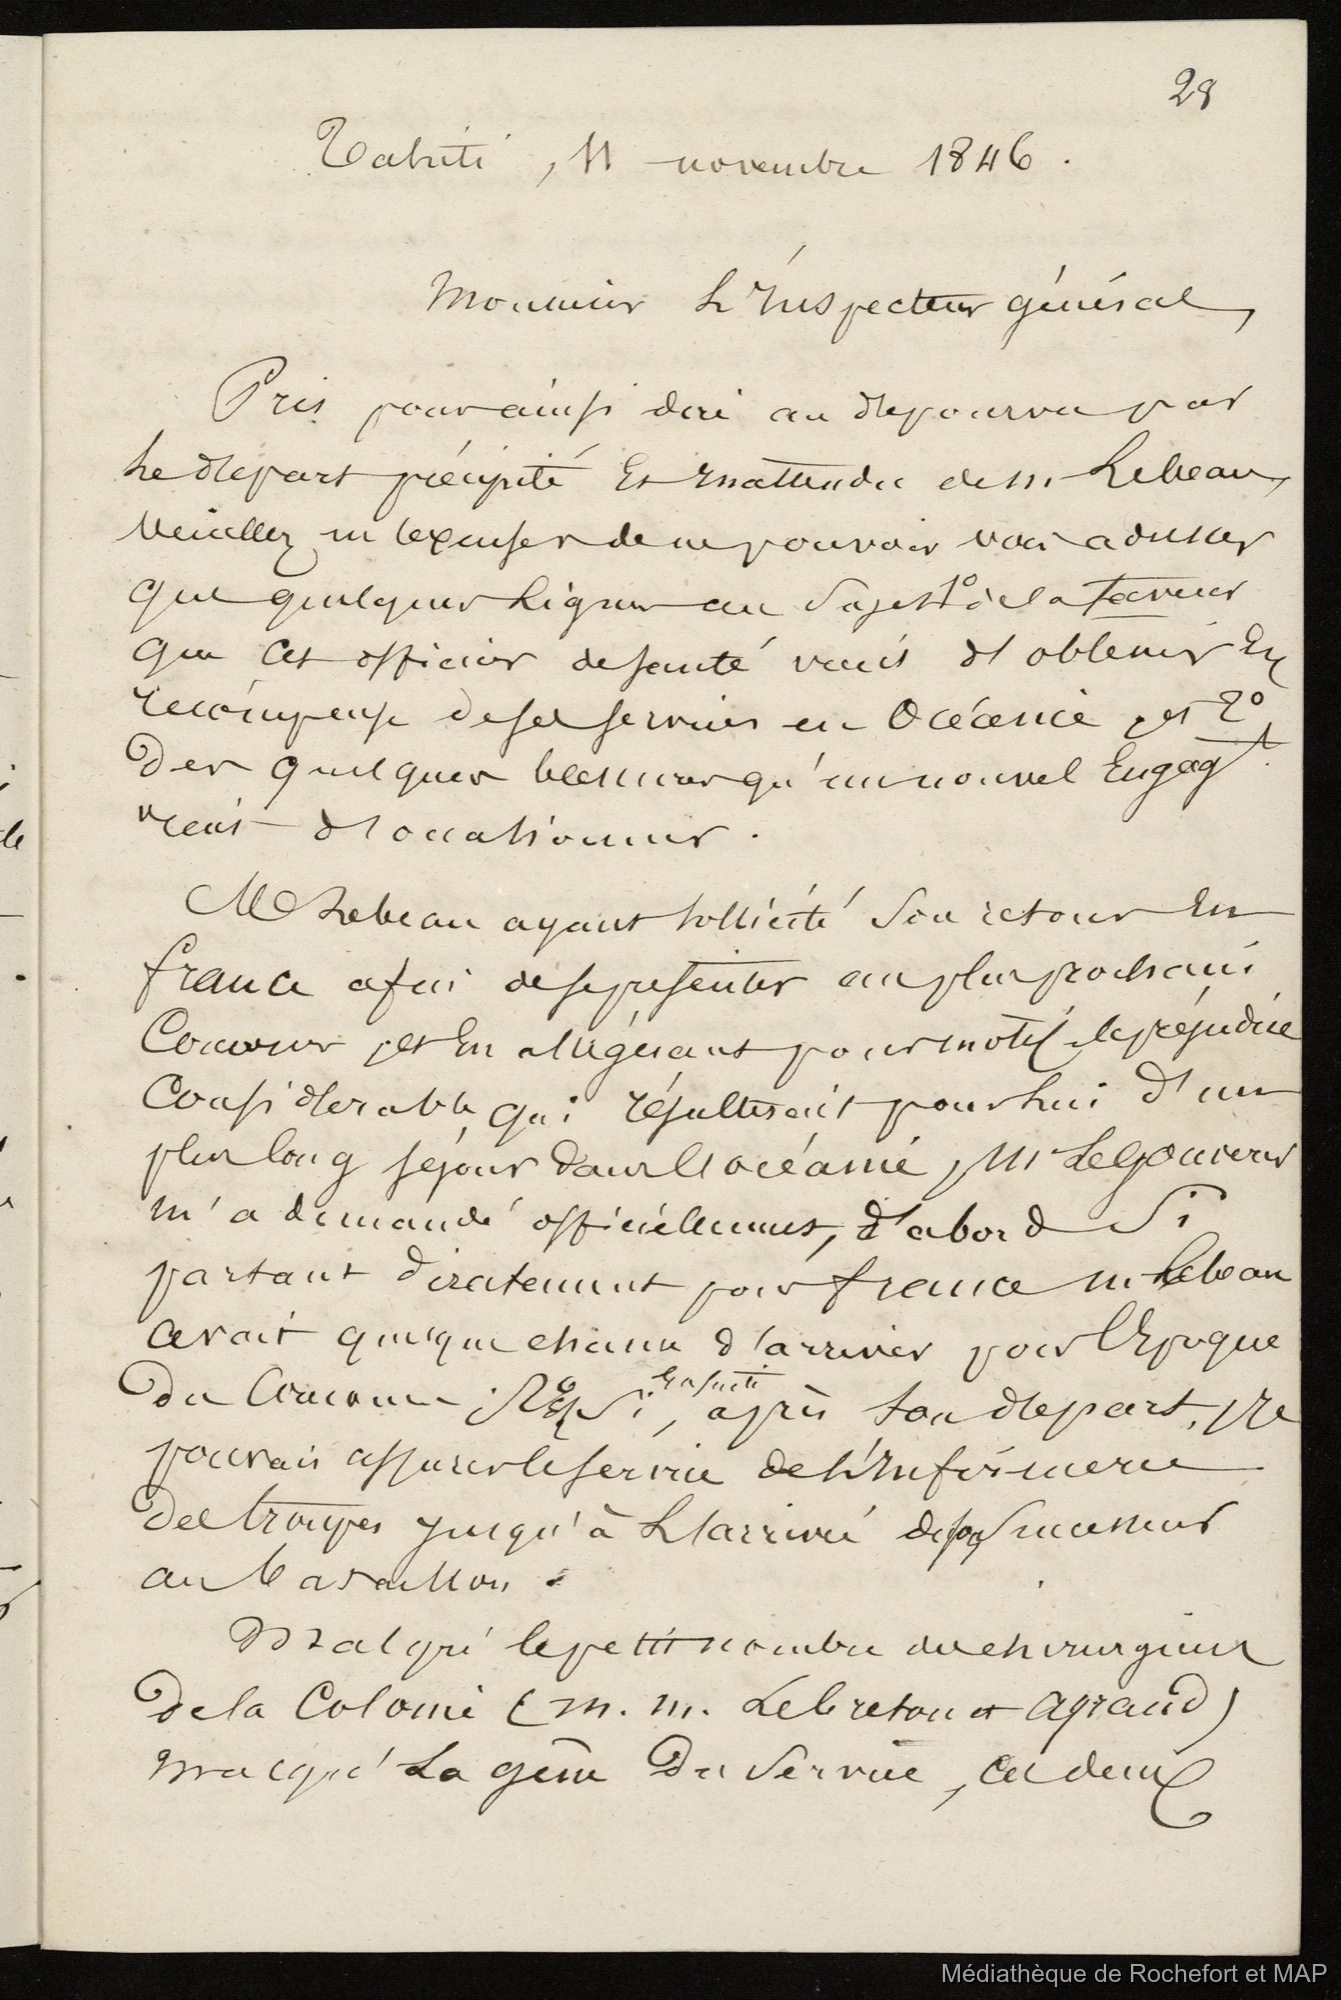 28
Tahiti, 11 novembre 1846.
Monsieur L'Inspecteur général,
Pris pour ainsi dire au dépourvu par
Le départ précipité Et Inattendu de M. Lebeau,
Veuillez m'excuser de ne pouvoir vous adresser
que quelques Lignes au Sujet 1° de la faveur
que cet officier de santé vient d'obtenir En
récompense de ses services en Océanie, et 2°
Des quelques blessures qu'un nouvel Engagt.
vient d'occasionner.
M Lebeau ayant sollicité Son retour En
france afin de se présenter au plus prochain
Concours, et En alléguant pour motif le préjudice
Considérable qui résulterait pour Lui d'un
plus long séjour dans l'océanie, Mr Le Gouverneur
m'a demandé officiellement, d'abord Si
partant directement pour france M. Lebeau
avait quelque chance d'arriver pour l'Epoque
Du Concours, Si Ensuite, après son départ, Je
pouvais assurer le service de L'Infirmerie
Des troupes jusqu'à L'arrivée de son Successeur
au bataillon.
Malgré le petit nombre de chirurgiens
De la Colonie (M. M. Lebreton et Ayraud)
Malgré La gêne Du Service, Ces deux
Médiathèque de Rochefort et MAP